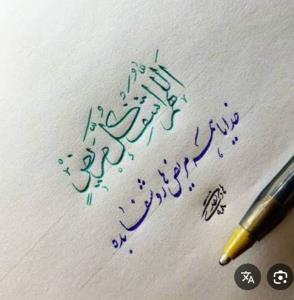 اللهم اشف کل مریض
خدایا همه مریض ها رو شفا بده